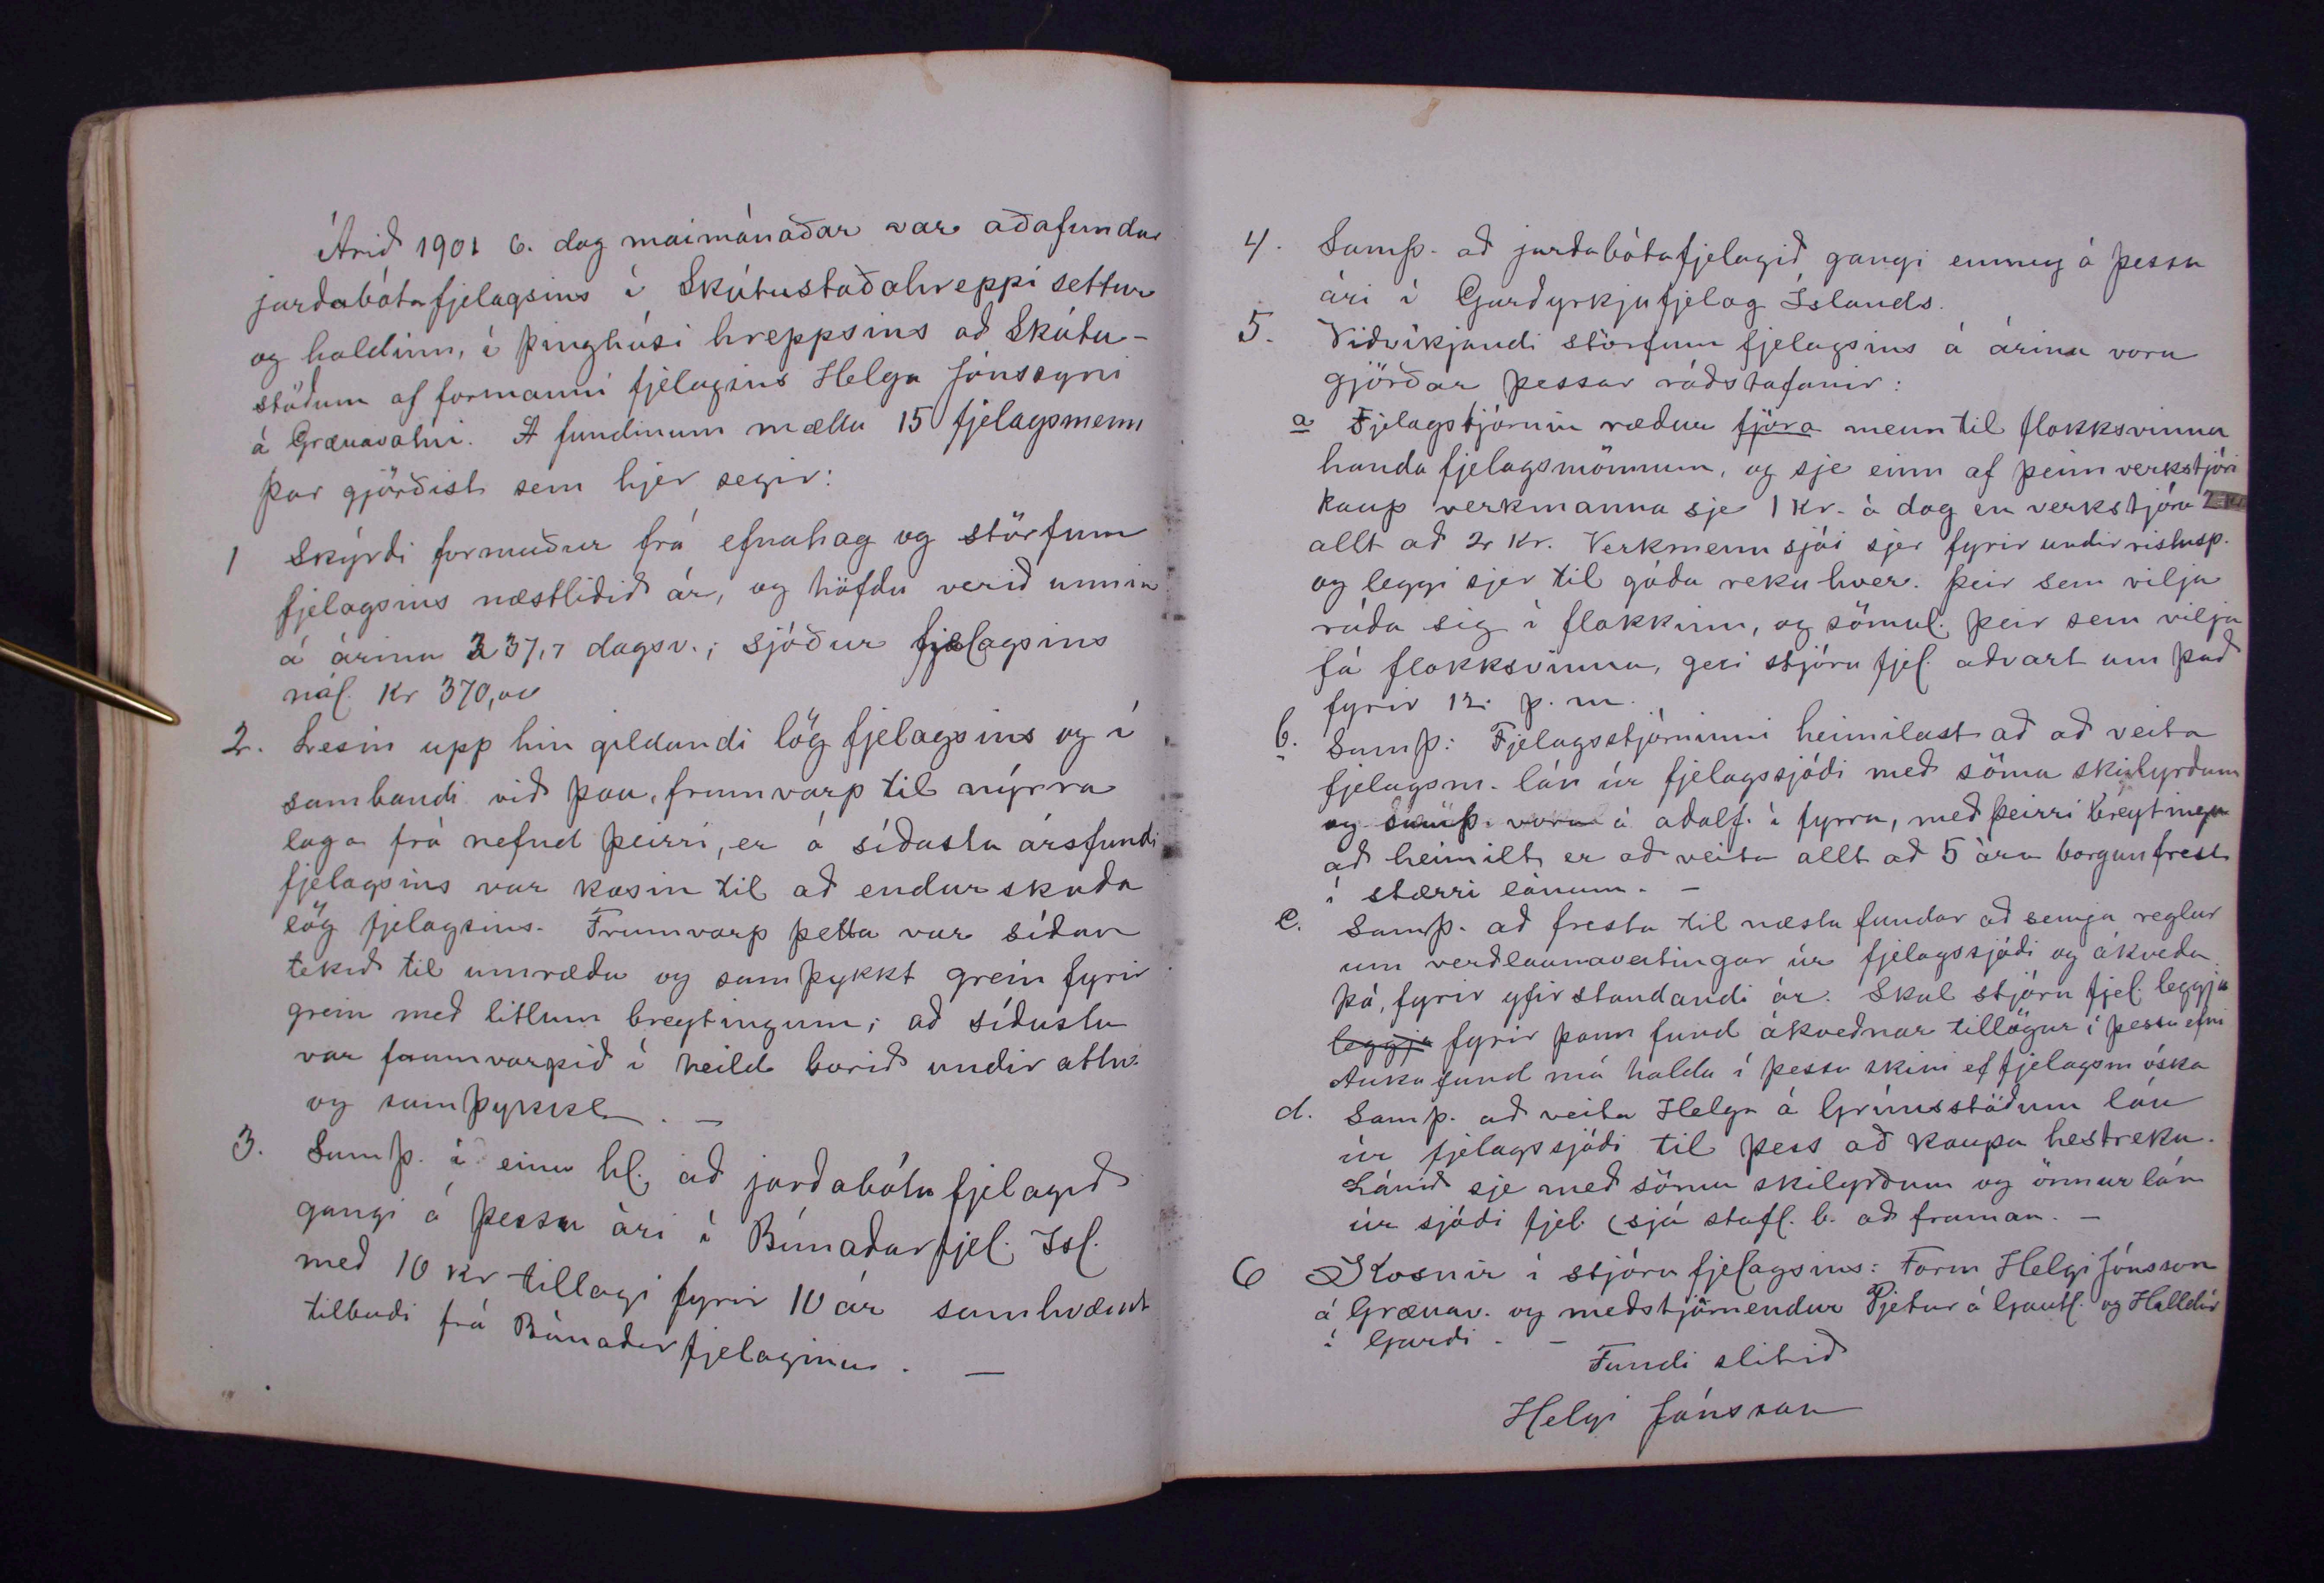 Árið 1901 6. dag maimánaðar var aðafundur
jarðabótafjelagsins í Skútustaðahreppi settur
og haldinn, í þinghúsi hreppsins að Skútu-
stöðum af formanni fjelagsins Helga Jónssyni
á Grænavatni. Á fundinum mættu 15 fjelagsmenn
Þar gjörðist sem hjer segir:
1 Skýrði formaður frá efnahag og störfum
fjelagsins næstliðið ár, og höfðu verið unnin
á árinu 337,7 dagsv.; sjóður fjelagsins
nál. Kr 370,00
2. Lesin upp hin gildandi lög fjelagsins og í
sambandi við þau, frumvarp til nýrra
laga frá nefnd þeirri, er á síðasta ársfundi
fjelagsins var kosin til að endurskoða
lög fjelagsins. Frumvarp þetta var síðan
tekið til umræðu og samþykkt grein fyrir
grein með litlum breytingum; að síðustu
var frumvarpið í heild borið undir atkv.
og samþykkt. —
3. Samþ. í einu hl. að jarðabótafjelagið
gangi á þessu ári í Búnaðarfjel. Ísl.
með 10 kr tillagi fyrir 10 ár samkvæmt
tilboði frá Búnaðarfjelaginu. —
4. Samþ. að jarðabótafjelagið gangi einnig á þessu
ári í Garðyrkjufjelag Íslands.
5. Viðvíkjandi störfum fjelagsins á árinu voru
gjörðar þessar ráðstafanir:
a Fjelagstjórnin ræður fjóra menn til flokksvinnu
handa fjelagsmönnum, og sje einn af þeim verkstjóri
Kaup verkmanna sje 1 Kr. á dag en verkstjóra 2 kr
allt að 2 Kr. Verkmenn sjái sjer fyrir undirristusp.
og leggi sjer til góða reku hver. Þeir sem vilja
ráða sig í flokkinn, og sömul. þeir sem vilja
fá flokksvinnu, geri stjórn fjel. aðvart um það
fyrir 12. þ. m.
b. Samþ: Fjelagsstjórninni heimilast að að veita
fjelagsm. lán úr fjelagssjóði með sömu skilyrðum
og samþ. voru á aðalf. í fyrra, með þeirri breytingu
að heimilt er að veita allt að 5 ára borgunfrest
í stærri lánum. —
c. Samþ. að fresta til næsta fundar að semja reglur
um verðlaunaveitingar úr fjelagssjóði og ákveða
þá, fyrir yfirstandandi ár. Skal stjórn fjel. leggja
leggja fyrir þann fund ákveðnar tillögur í þessu efni
Aukafund má halda í þessu skini ef fjelagsm óska
d. Samþ. að veita Helga á Grímsstöðum lán
úr fjelagssjóði til þess að kaupa hestreku.
Lánið sje með sömu skilyrðum og önnur lán
úr sjóði fjel. (sjá stafl. b. að framan. —
6 Kosnir í stjórn fjelagsins: Form Helgi Jónsson
á Grænav. og meðstjórnendur Pjetur á Gautl. og Halldór
í Garði. —
Fundi slitið
Helgi Jónsson